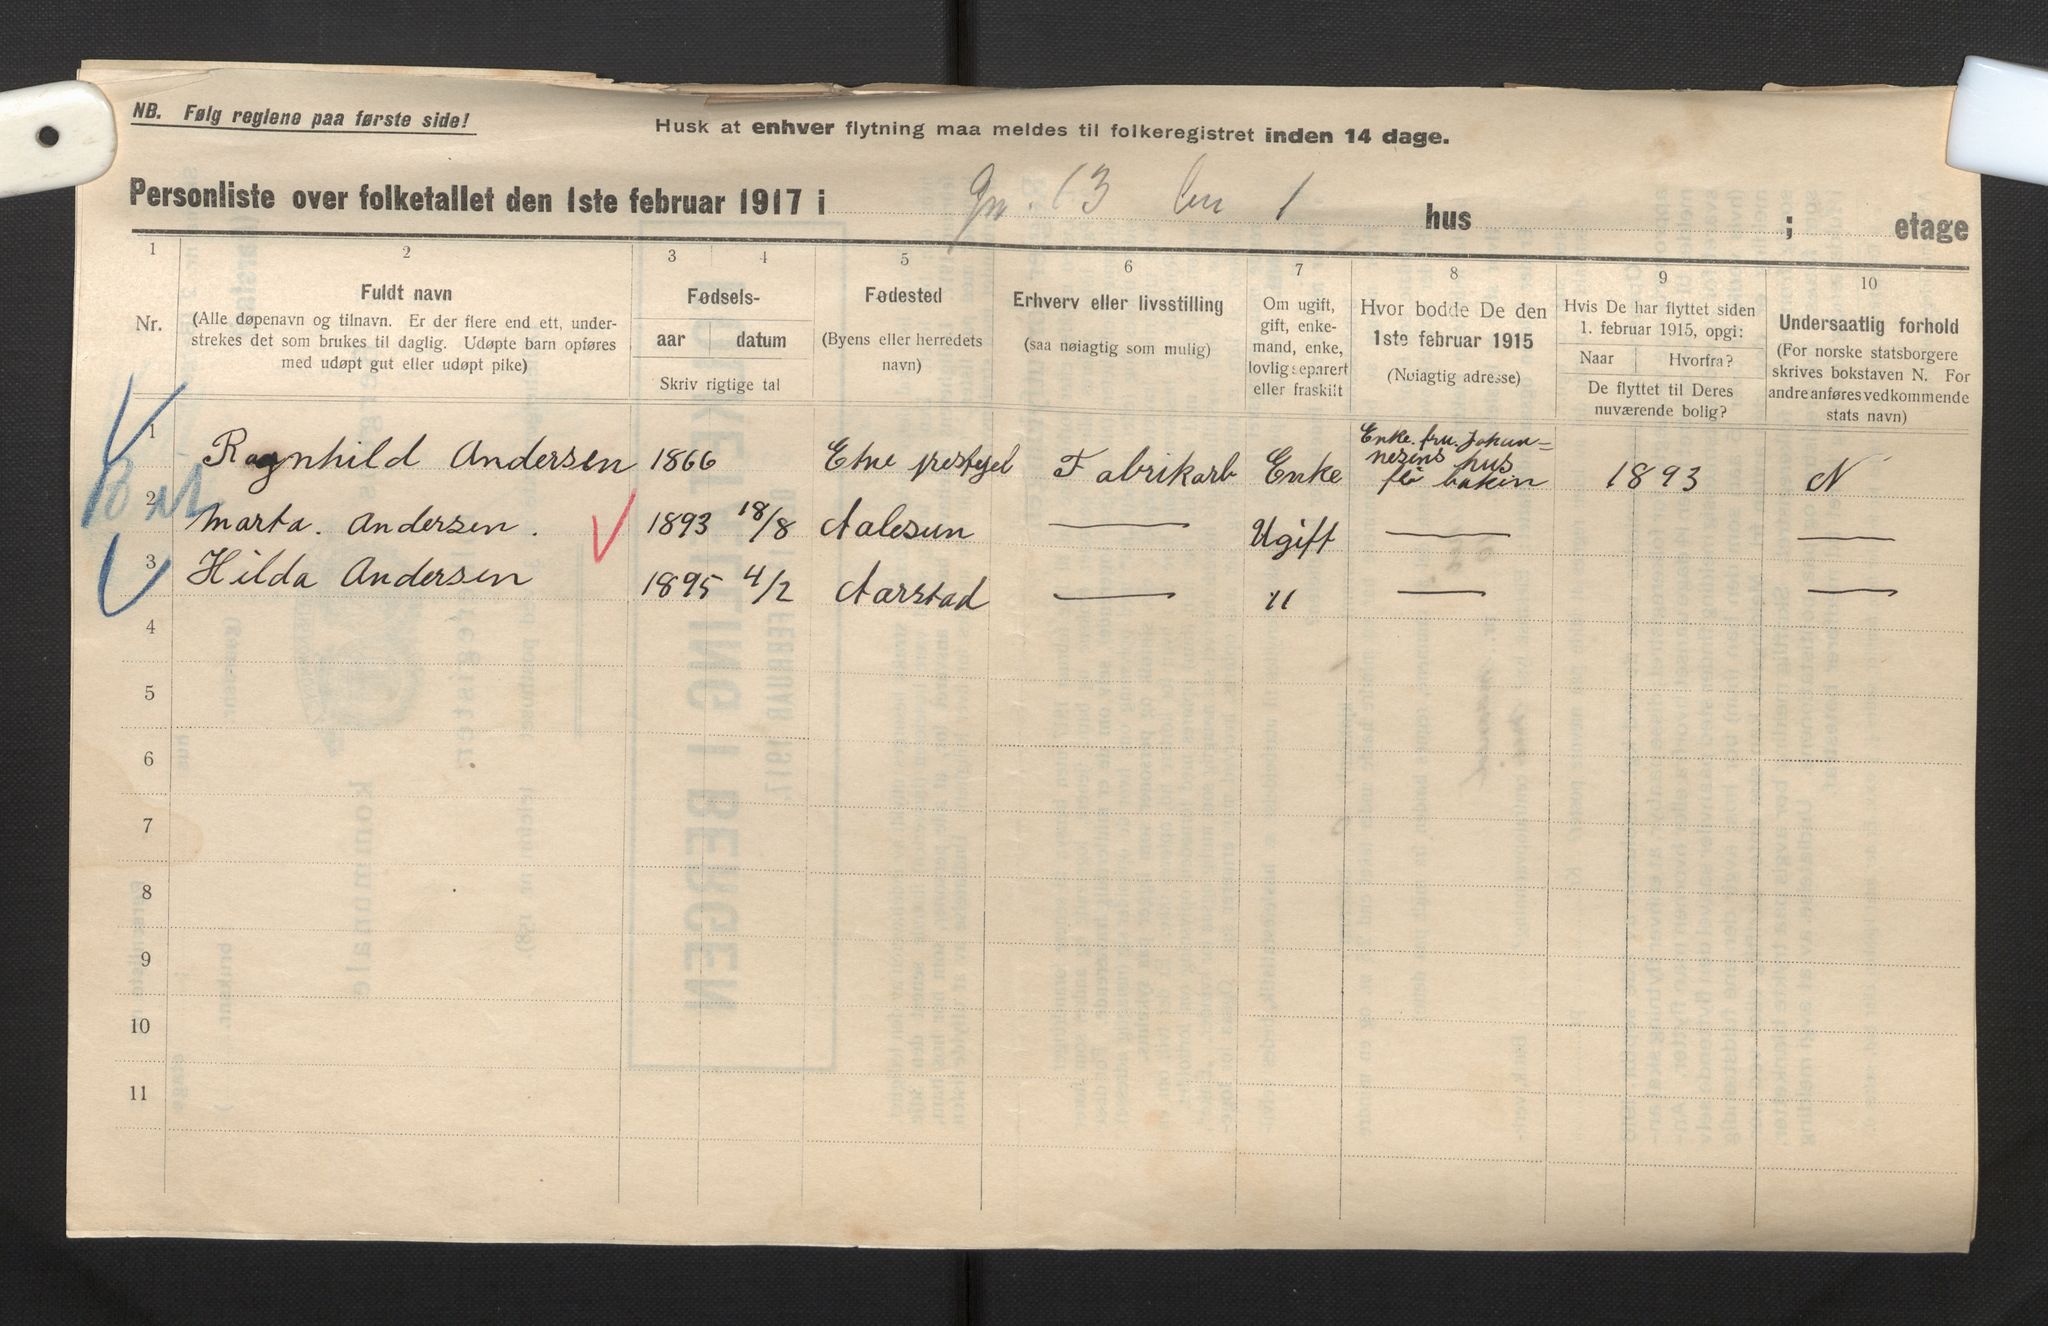 NB. Følg reglene paa første side!
Husk at enhver flytning maa meldes til folkeregistret inden 14 dage.
Personliste over folketallet den 1ste februar 1917 i Gn. 13 bn 1 hus ; etage
1 2 3 4 5 6 7 8 9 10
Nr.
Fuldt navn
(Alle døpenavn og tilnavn. Er der flere end ett, under-
strekes det som brukes til daglig. Udøpte barn opføres
med udøpt gut eller udøpt pike)
Fødsels-
aar datum
Skriv rigtige tal
Fødested
(Byens eller herredets
navn)
Erhverv eller livsstilling
(saa nøiagtig som mulig)
Om ugift,
gift, enke-
mand, enke,
lovlig separert
eller fraskilt
Hvor bodde De den
1ste februar 1915
(Nøiagtig adresse)
Hvis De har flyttet siden
1. februar 1915, opgi:
Naar Hvorfra?
De flyttet til Deres
nuværende bolig?
Undersaatlig forhold
(For norske statsborgere
skrives bokstaven N. For
andre anføres vedkommende
stats navn)
1 Ragnhild Andersen 1866 Etne prestejel Fabrikarb Enke Enke. fru. Johan-
nesens hus
bakin 1893 N
2 Marta. Andersen. 1893 18/8 Aalesun — Ugift — —
3 Hilda Andersen 1895 4/2 Aarstad — " — —
4
5
6
7
8
9
10
11